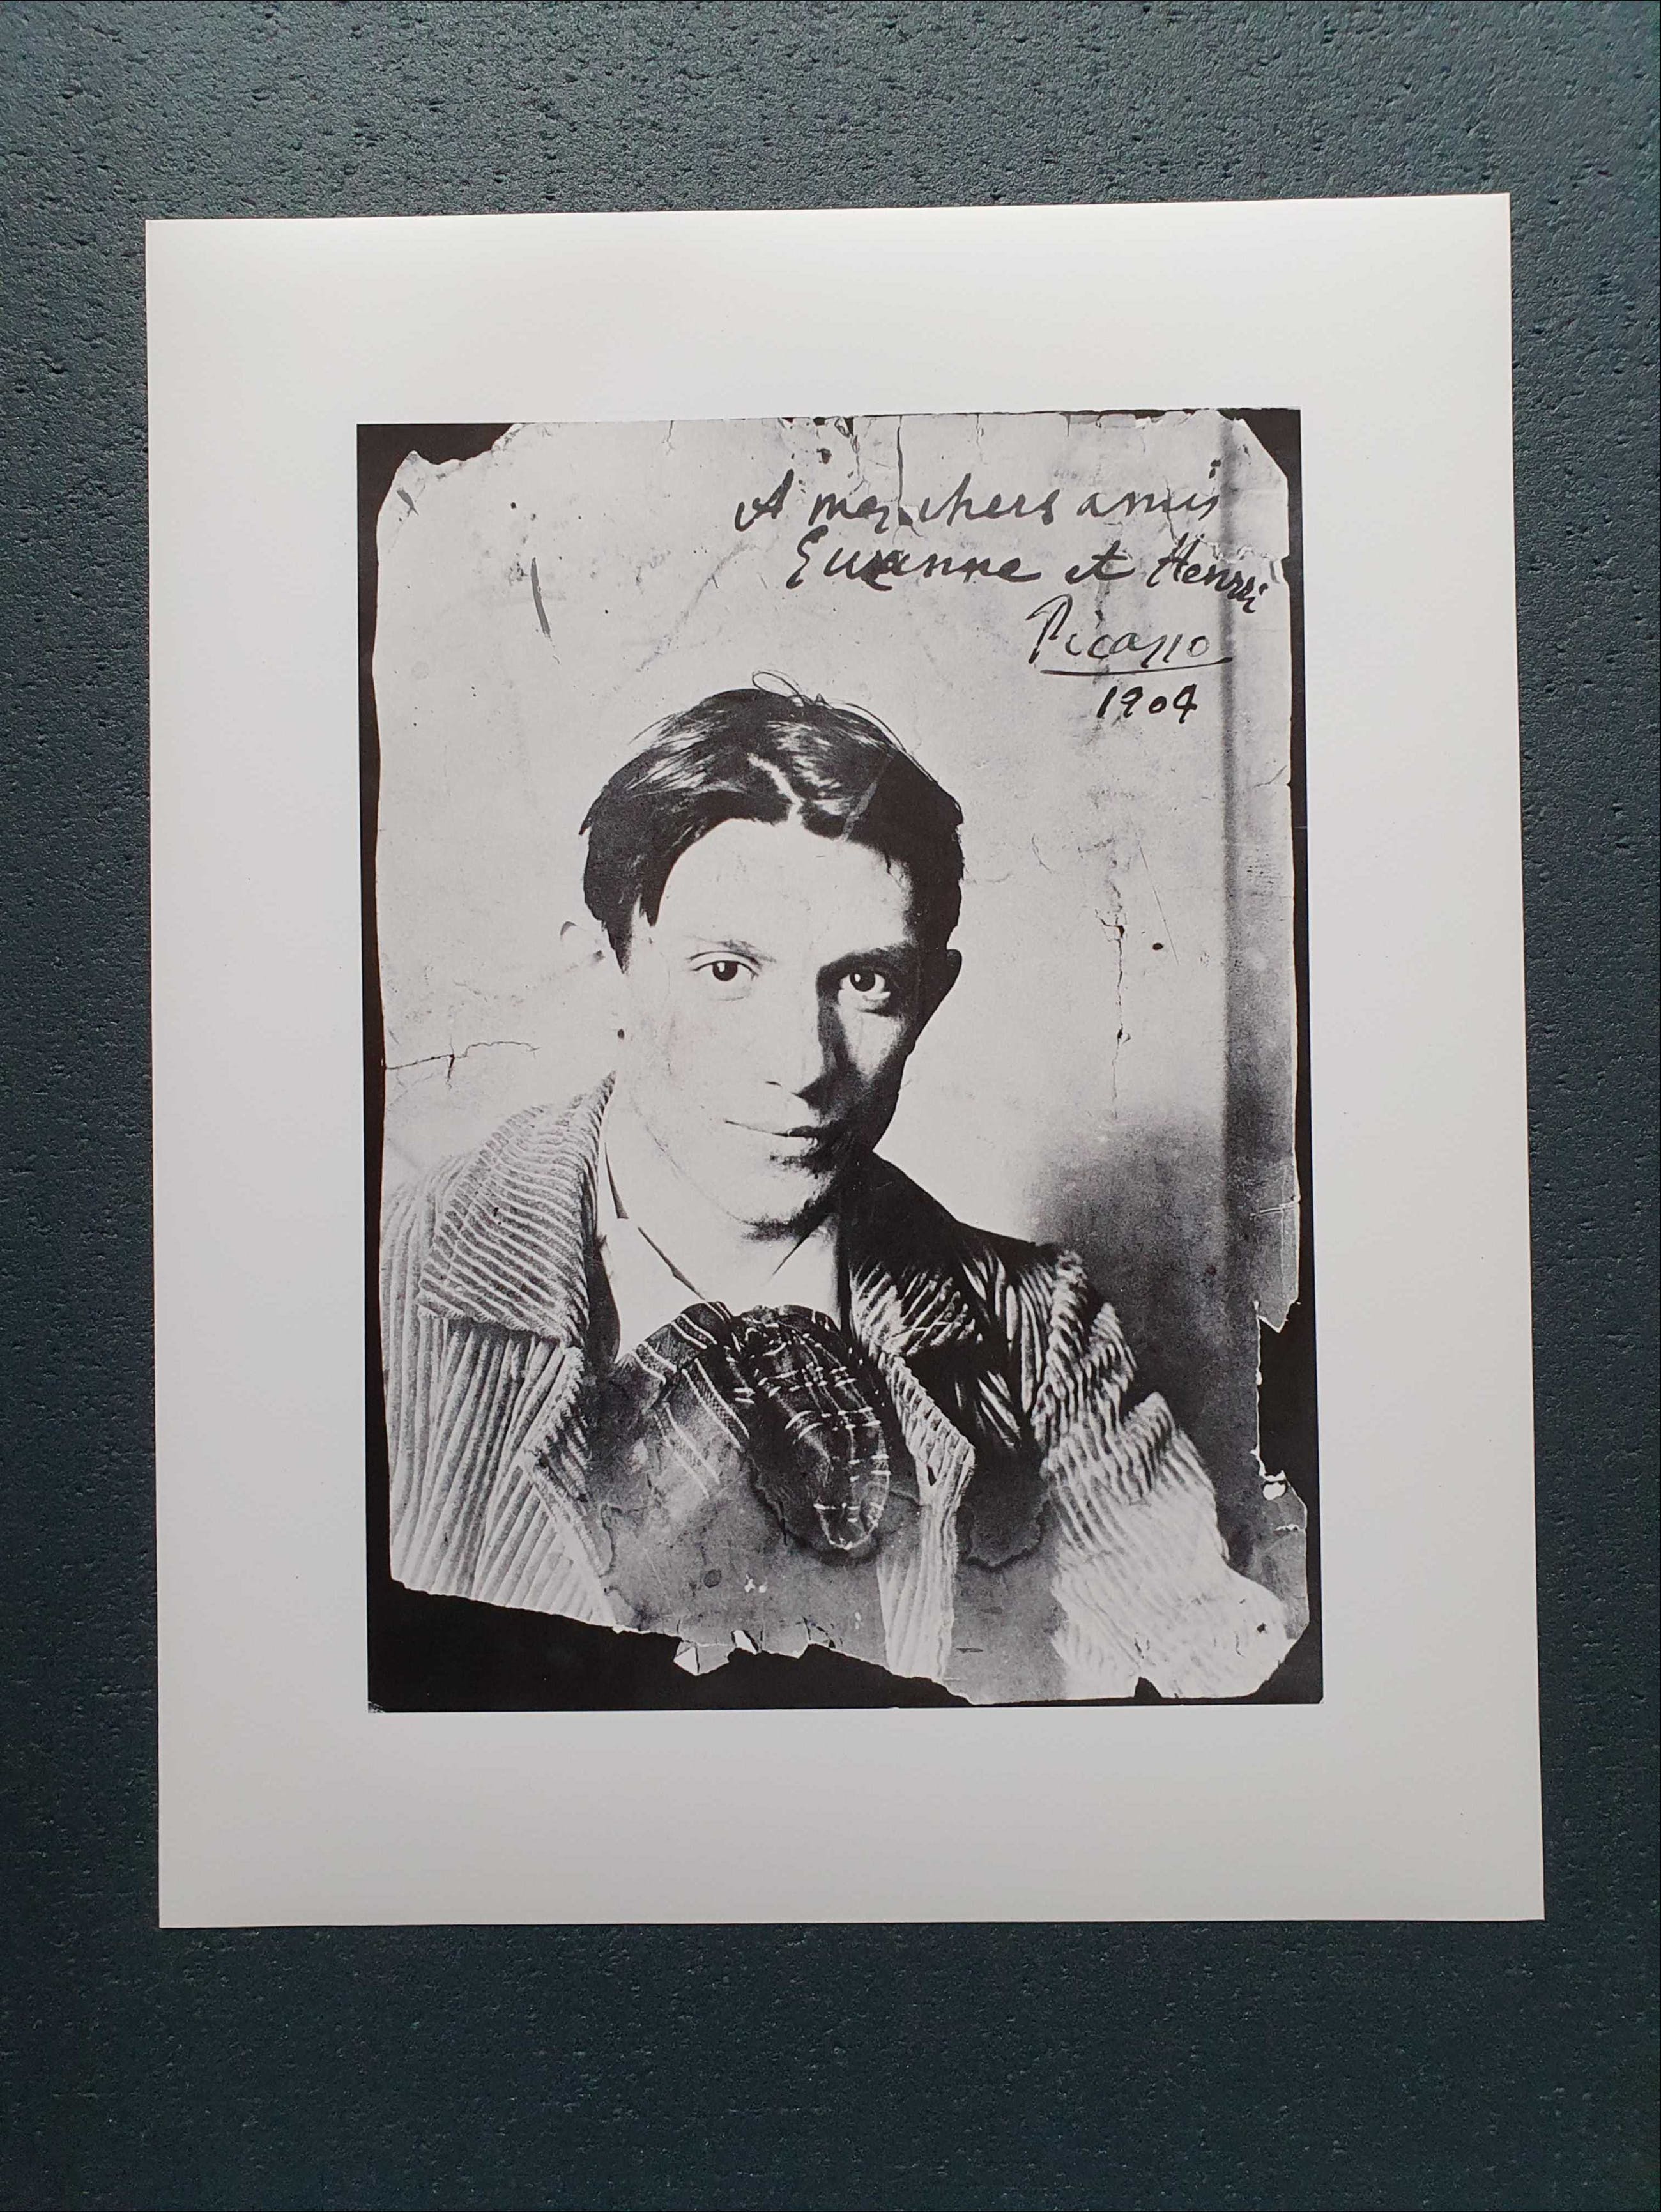 A mes chers amis
Suzanne et Henri
Picasso
1904